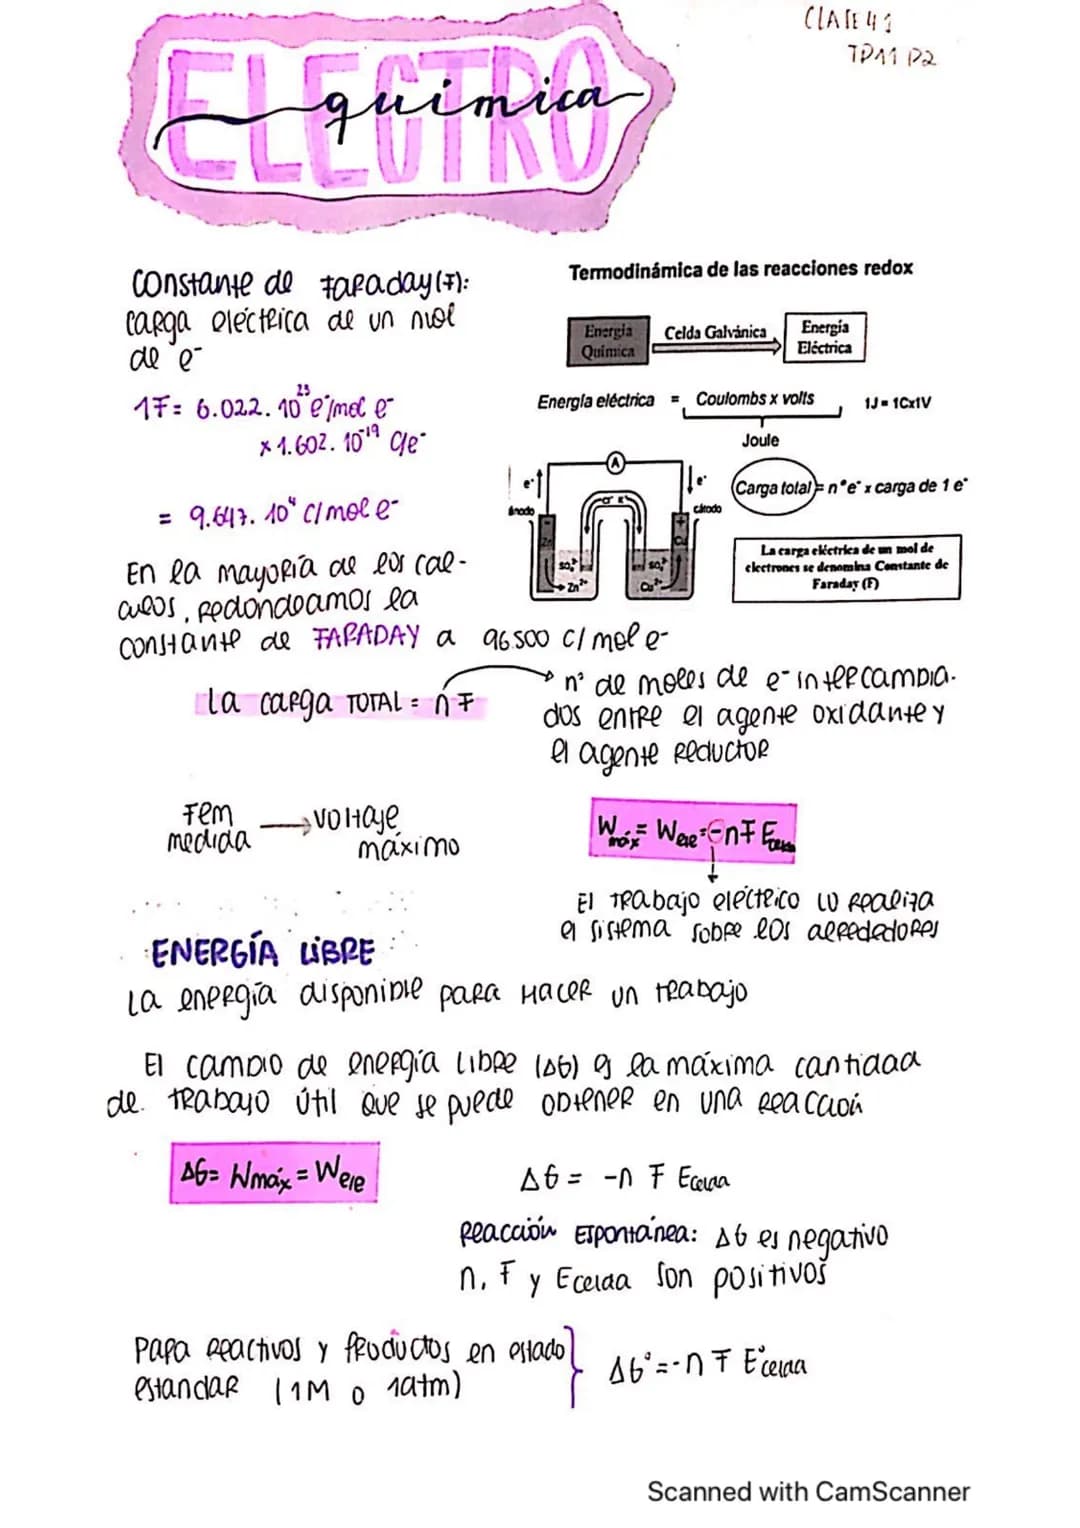 CLASE 41
TP11 P2
ELECTRO
química
Constante de Faraday (F):
carga eléctrica de un mol
de e-
1F = 6.022. 10^23 e-/mol e-
x 1.602. 10^-19 C/e-
= 9.647. 10^4 C/mol e-
Termodinámica de las reacciones redox
Energía Química
Celda Galvánica
Energía Eléctrica
Energía eléctrica = Coulombs x volts
1J = 1Cx1V
Joule
Carga total = n°e- x carga de 1 e-
La carga eléctrica de un mol de
electrones se denomina Constante de
Faraday (F)
A
e-
e-
ánodo
cátodo
-
+
Zn
Cu
Zn2+
Cu2+
En la mayoría de los cál-
culos, redondeamos la
constante de FARADAY a 96500 C/mol e-
La carga TOTAL = n F
n° de moles de e- intercambia-
dos entre el agente oxidante y
el agente reductor
Fem
medida
voltaje
máximo
Wmáx = Wele = -nF Ecelda
El trabajo eléctrico lo realiza
el sistema sobre los alrededores
ENERGÍA LIBRE
La energía disponible para HACER un trabajo
El cambio de energía libre (ΔG) es la máxima cantidad
de trabajo útil que se puede obtener en una reacción
ΔG = Wmáx = Wele
ΔG = -n F Ecelda
Reacción Espontánea: ΔG es negativo
n, F y Ecelda son positivos
Para reactivos y productos en estado
estandar (1M o 1atm)
ΔG° = -n F E°celda
Scanned with CamScanner